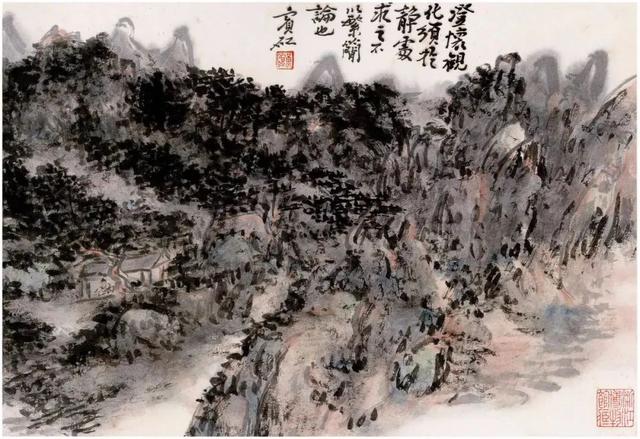 澄懷觀
化須於
靜處
求之不
以繁簡
論也
賓虹